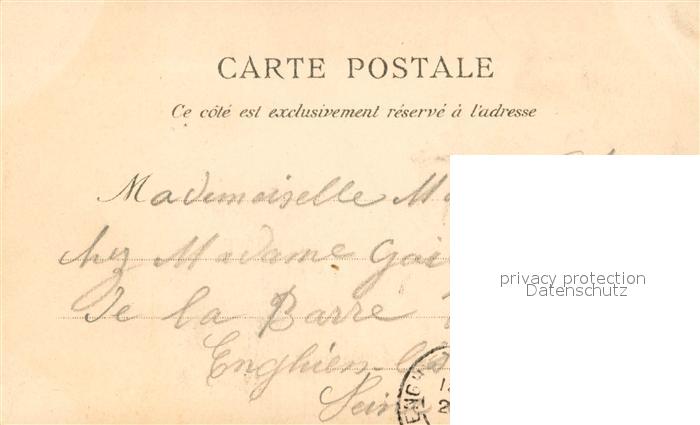 CARTE POSTALE
Ce côté est exclusivement réservé à l'adresse
Mademoiselle
chez Madame
de la Barre
Enghien
Seine
privacy protection
Datenschutz
ENGH